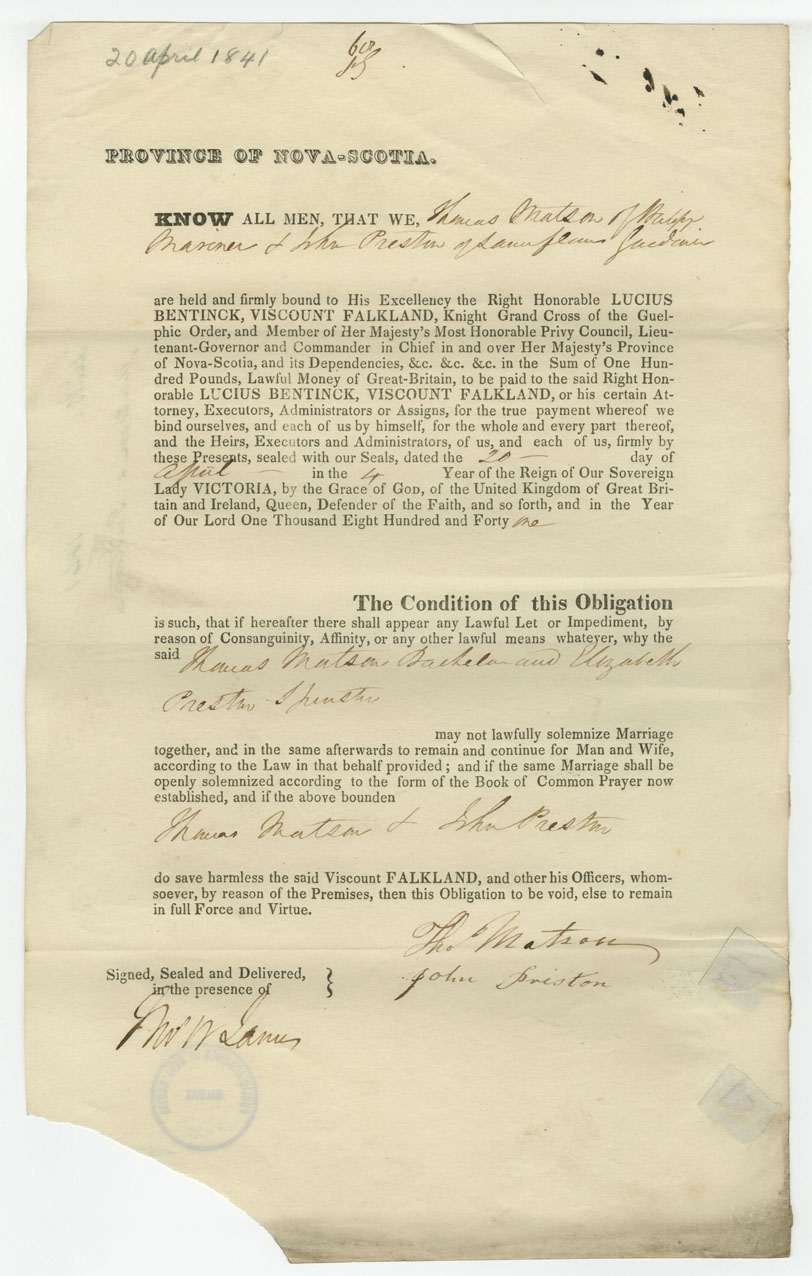 20 April 1841
PROVINCE OF NOVA-SCOTIA.
KNOW ALL MEN, THAT WE, Thomas Matson of Halifax
Mariner & John Preston of same place Gardiner
are held and firmly bound to His Excellency the Right Honorable LUCIUS
BENTINCK, VISCOUNT FALKLAND, Knight Grand Cross of the Guel-
phic Order, and Member of Her Majesty's Most Honorable Privy Council, Lieu-
tenant-Governor and Commander in Chief in and over Her Majesty's Province
of Nova-Scotia, and its Dependencies, &c. &c. &c. in the Sum of One Hun-
dred Pounds, Lawful Money of Great-Britain, to be paid to the said Right Hon-
orable LUCIUS BENTINCK, VISCOUNT FALKLAND, or his certain At-
torney, Executors, Administrators or Assigns, for the true payment whereof we
bind ourselves, and each of us by himself, for the whole and every part thereof,
and the Heirs, Executors and Administrators, of us, and each of us, firmly by
these Presents, sealed with our Seals, dated the 20 — day of
April — in the 4 Year of the Reign of Our Sovereign
Lady VICTORIA, by the Grace of GOD, of the United Kingdom of Great Bri-
tain and Ireland, Queen, Defender of the Faith, and so forth, and in the Year
of Our Lord One Thousand Eight Hundred and Forty one
The Condition of this Obligation
is such, that if hereafter there shall appear any Lawful Let or Impediment, by
reason of Consanguinity, Affinity, or any other lawful means whatever, why the
said Thomas Matson Bachelor and Elizabeth
Preston Spinster
may not lawfully solemnize Marriage
together, and in the same afterwards to remain and continue for Man and Wife,
according to the Law in that behalf provided; and if the same Marriage shall be
openly solemnized according to the form of the Book of Common Prayer now
established, and if the above bounden
Thomas Matson & John Preston
do save harmless the said Viscount FALKLAND, and other his Officers, whom-
soever, by reason of the Premises, then this Obligation to be void, else to remain
in full Force and Virtue.
Thos Matson
John Priston
Signed, Sealed and Delivered,
in the presence of
Thos W James